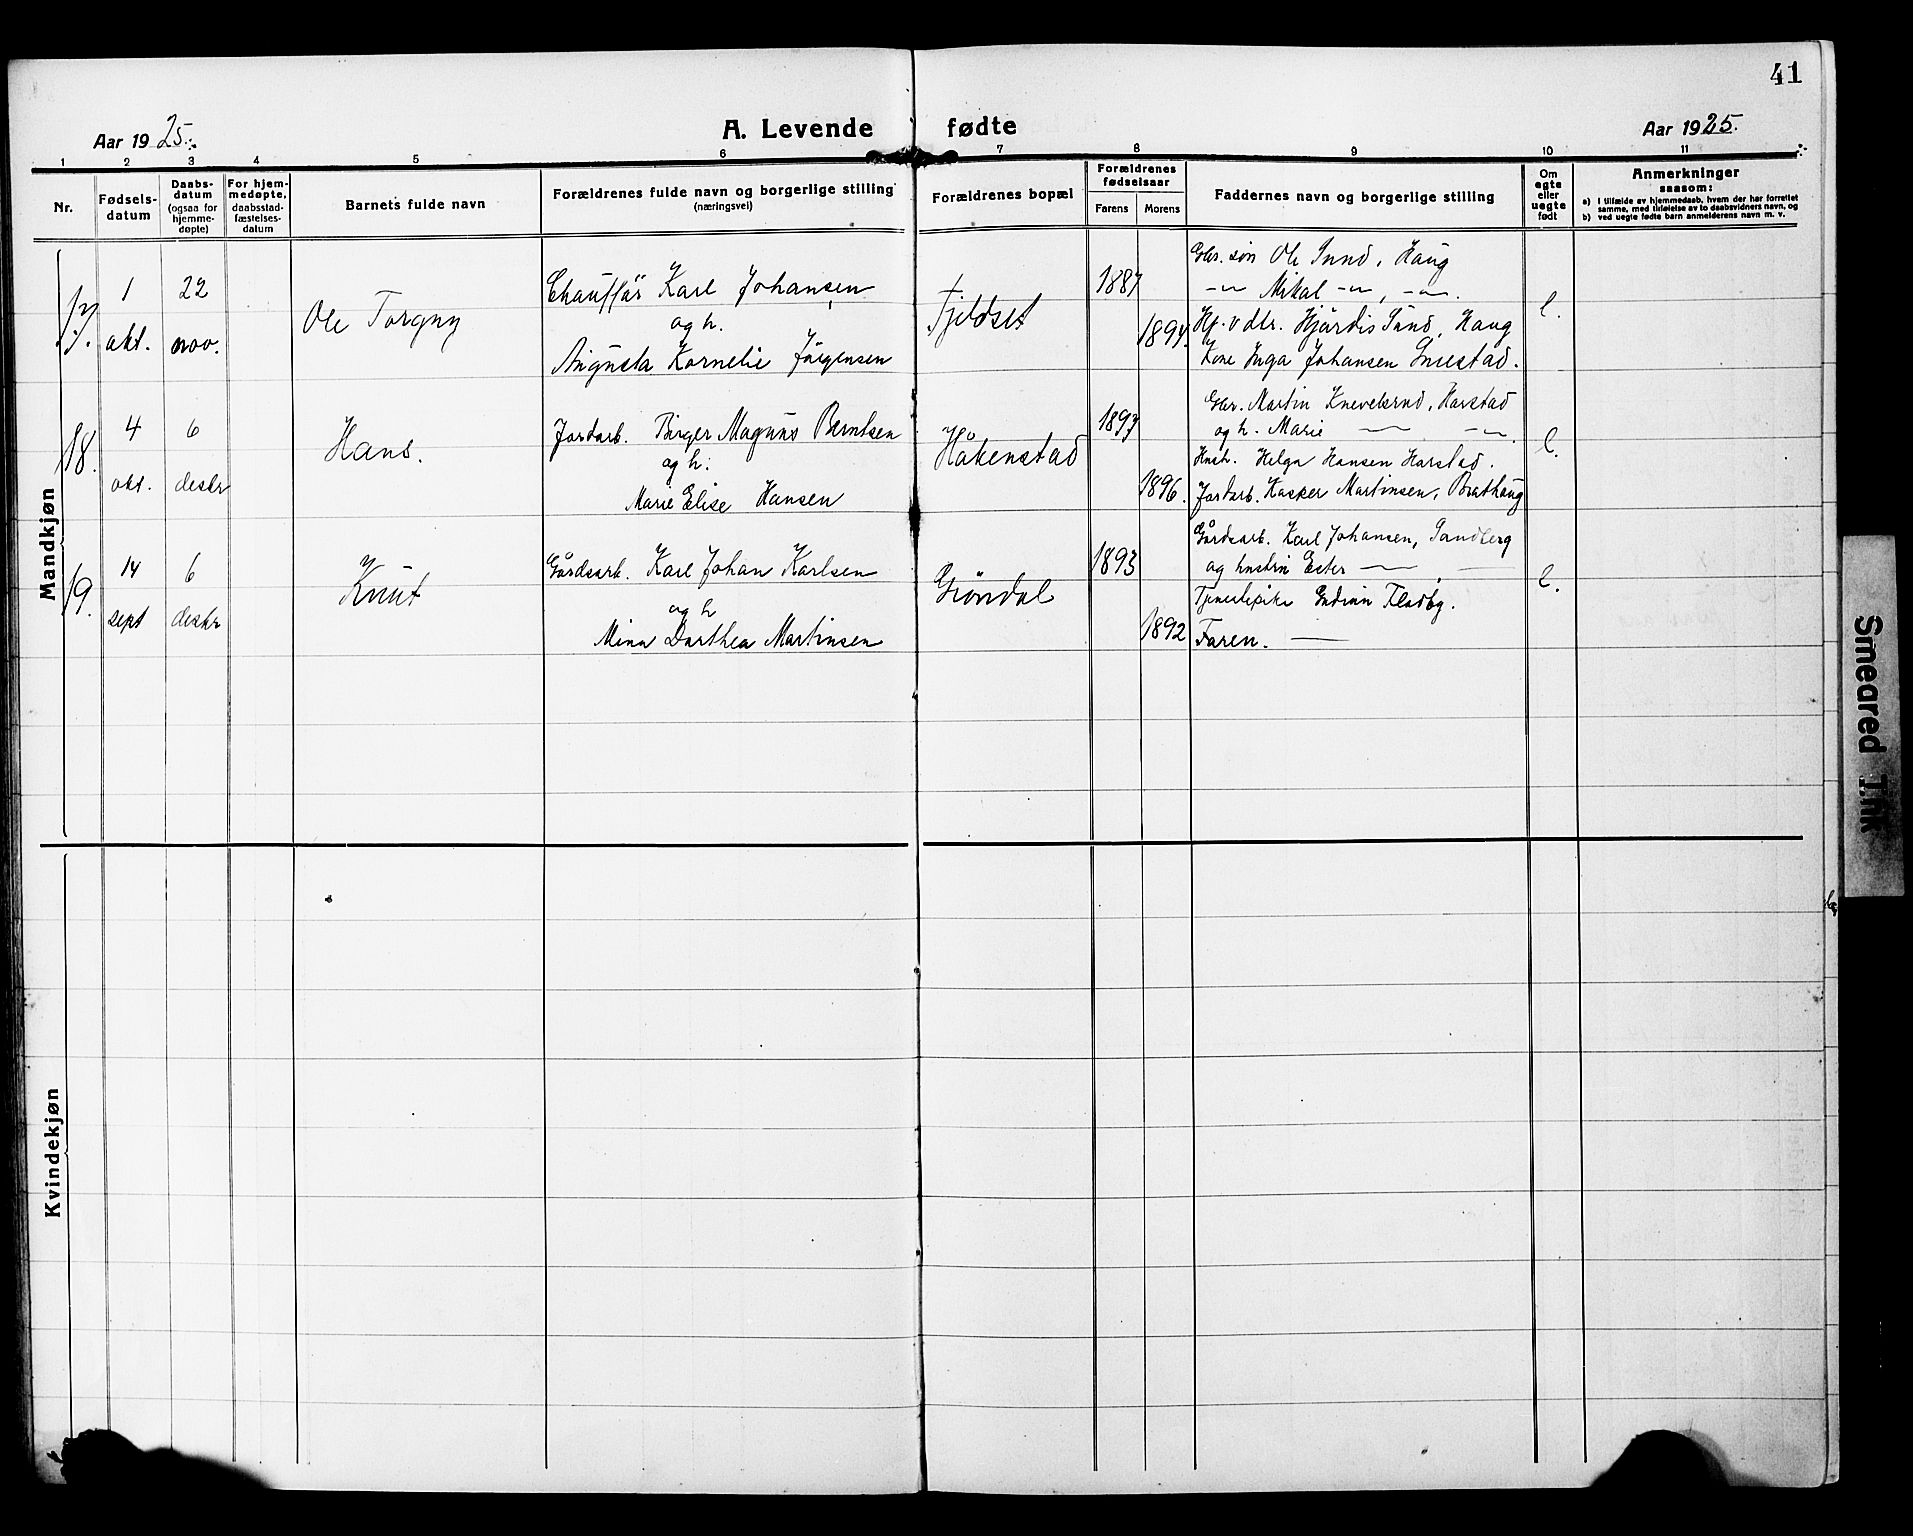 41
Aar 1925.
A. Levende fødte
Aar 1925.
1 2 3 4 5 6 7 8 9 10 11
Nr.
Fødsels-
datum
Daabs-
datum
(ogsaa for
hjemme-
døpte)
For hjem-
medøpte,
daabsstad-
fæstelses-
datum
Barnets fulde navn
Forældrenes fulde navn og borgerlige stilling
(næringsvei)
Forældrenes bopæl
Forældrenes
fødselsaar
Farens
Morens
Faddernes navn og borgerlige stilling
Om
egte
eller
uegte
født
Anmerkninger
saasom:
a) I tilfælde av hjemmedaab, hvem der har forrettet
samme, med tilføielse av to daabsvidners navn, og
b) ved uegte fødte barn anmelderens navn m. v.
Mandkjøn
17.
1
okt.
22
nov.
Ole Torgny
Chauffør Karl Johansen
og h.
Augusta Kornelie Jørgensen
Fjeldset
1887
1894.
Gbr. søn Ole Sund, Haug
-"- Mikal -"-, -"-.
Hj. v dtr. Hjørdis Sund, Haug
Kone Inga Johansen
e.
18.
4
okt.
6
desbr
Hans.
Jordarb. Birger Magnus Berntsen
og h.
Marie Elise Hansen
Håkenstad
1893
1896.
Gbr. Martin Knevelsrud, Harstad
og h. Marie — -"-.
Hush. Helga Hansen Harstad.
Jordarb. Kasper Martinsen, Brathaug
e.
19.
14
sept
6
desbr
Knut
Gårdsarb. Karl Johan Karlsen
og h
Mina Dorthea Martinsen
Grøndal
1893
1892
Gårdsarb. Karl Johansen, Sandberg
og hustru Ester — —
Tjenestepike Gudrun Fladby.
Faren. —
e.
Kvindekjøn
Smeared Ink